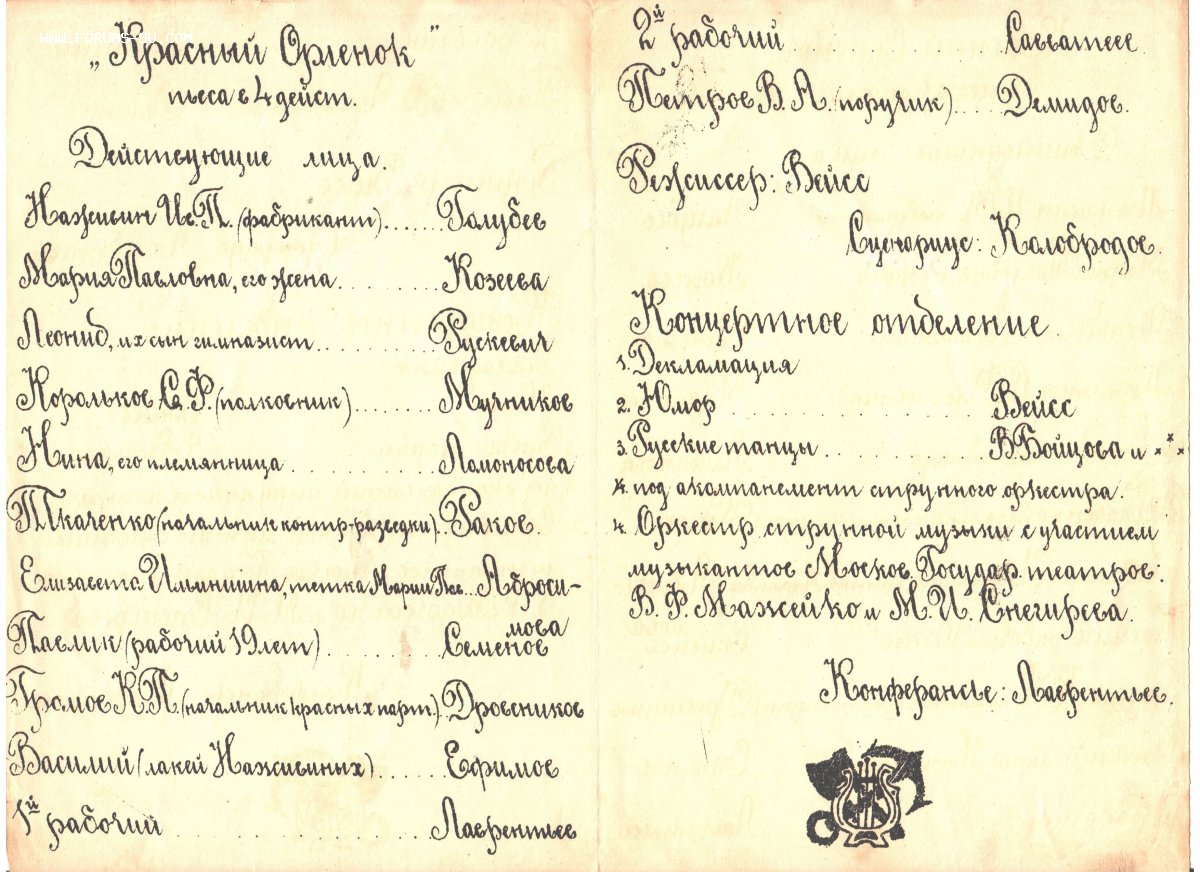 WWW.FORUMS-SU.COM
„Красный Орленок"
пьеса в 4 дейст.
Действующие лица.
Наживин Ив. П. (фабрикант)......Голубев
Мария Павловна, его жена.........Козеева
Леонид, их сын гимназист...........Рускевич
Корольков С. Ф. (полковник)........Мучников
Нина, его племянница...........Ломоносова
Ткаченко (начальник контр-разведки)..Раков.
Елизавета Ильинишна, тетка Марии Пав...Аброси-
мова
Павлик (рабочий 19 лет)..........Семенов
Громов К. П. (начальник красных парт.).Дровенников
Василий (лакей Наживиных)......Ефимов
1й рабочий...................Лаврентьев
2й рабочий..............Савватеев.
Петров В. А. (поручик)....Демидов.
Режиссер: Вейсс
Сценариус: Колобродов.
Концертное отделение.
1. Декламация
2. Юмор...................Вейсс
3. Русские танцы............В. Бойцова и ***
под акомпанемент струнного оркестра.
4. Оркестр струнной музыки с участием
музыкантов Москов. Государ. театров:
В. Ф. Мажейко и М. И. Снегирева.
Конферансье: Лаврентьев.